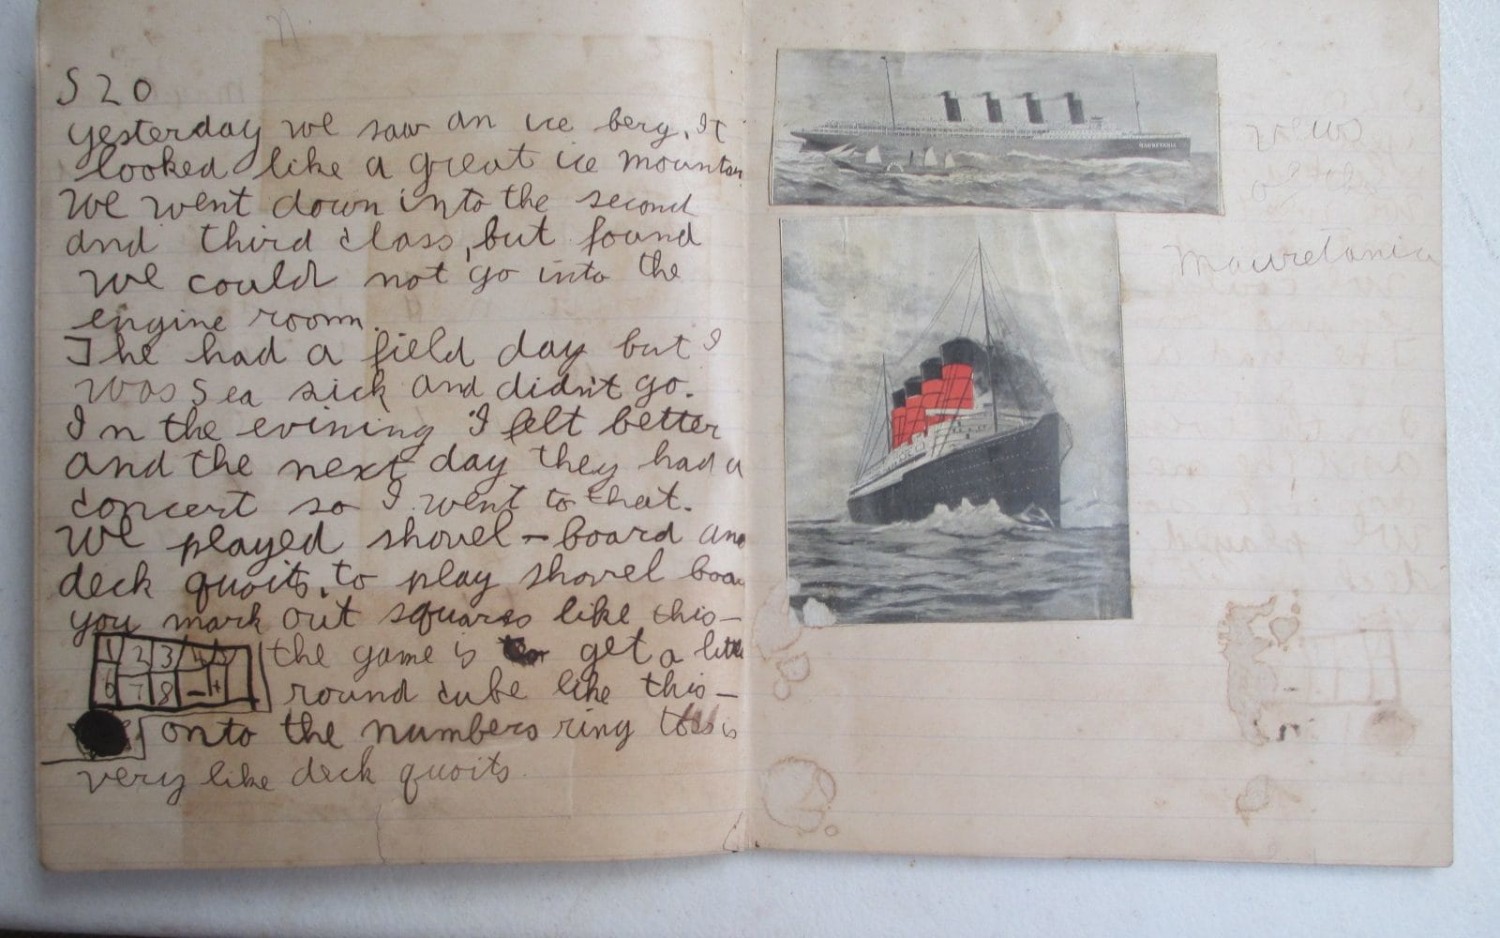 S 20
yesterday we saw an ice berg. It
looked like a great ice mountain
We went down into the second
and third class, but found
we could not go into the
engine room.
The had a field day but I
was sea sick and didn't go.
In the evining I felt better
and the next day they had a
concert so I went to that.
We played shovel-board and
deck quoits. to play shovel boar
you mark out squares like this-
1 2 3 4 5 the game is to get a little
6 7 8 - + round cube like this-
onto the numbers ring toss is
very like deck quoits.
MAURETANIA
views
of the
Mauretania